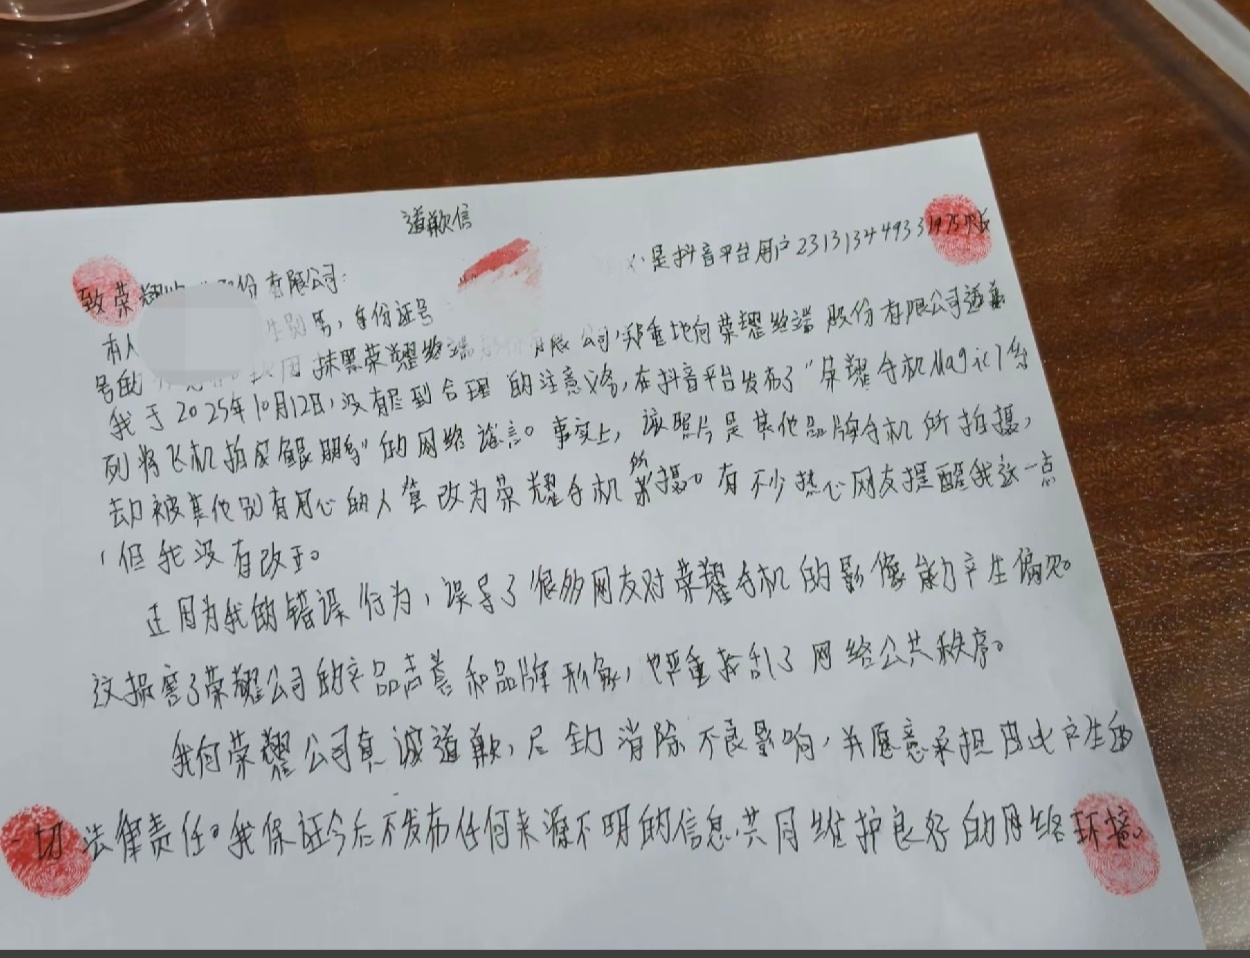 道歉信
致荣耀终端股份有限公司:
本人 性别男,身份证号 是抖音平台用户2313134493319757账
号的 因抹黑荣耀终端股份有限公司,郑重地向荣耀终端股份有限公司道歉
我于2025年10月12日,没有尽到合理的注意义务,在抖音平台发布了“荣耀手机Magic7系
列将飞机拍成鲲鹏”的网络谣言。事实上,该照片是其他品牌手机所拍摄,
却被其他别有用心的人篡改为荣耀手机所摄。有不少热心网友提醒我这一点
,但我没有改正。
正因为我的错误行为,误导了很多网友对荣耀手机的影像能力产生偏见。
这损害了荣耀公司的产品声誉和品牌形象,也严重扰乱了网络公共秩序。
我向荣耀公司真诚道歉,尽力消除不良影响,并愿意承担因此产生的
一切法律责任。我保证今后不发布任何来源不明的信息,共同维护良好的网络环境。